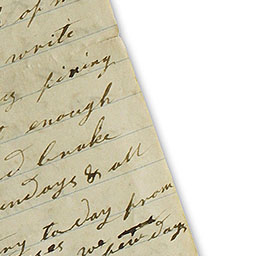 of m
write
pining
enough
d broke
undays & all
ry to day from
es we few days